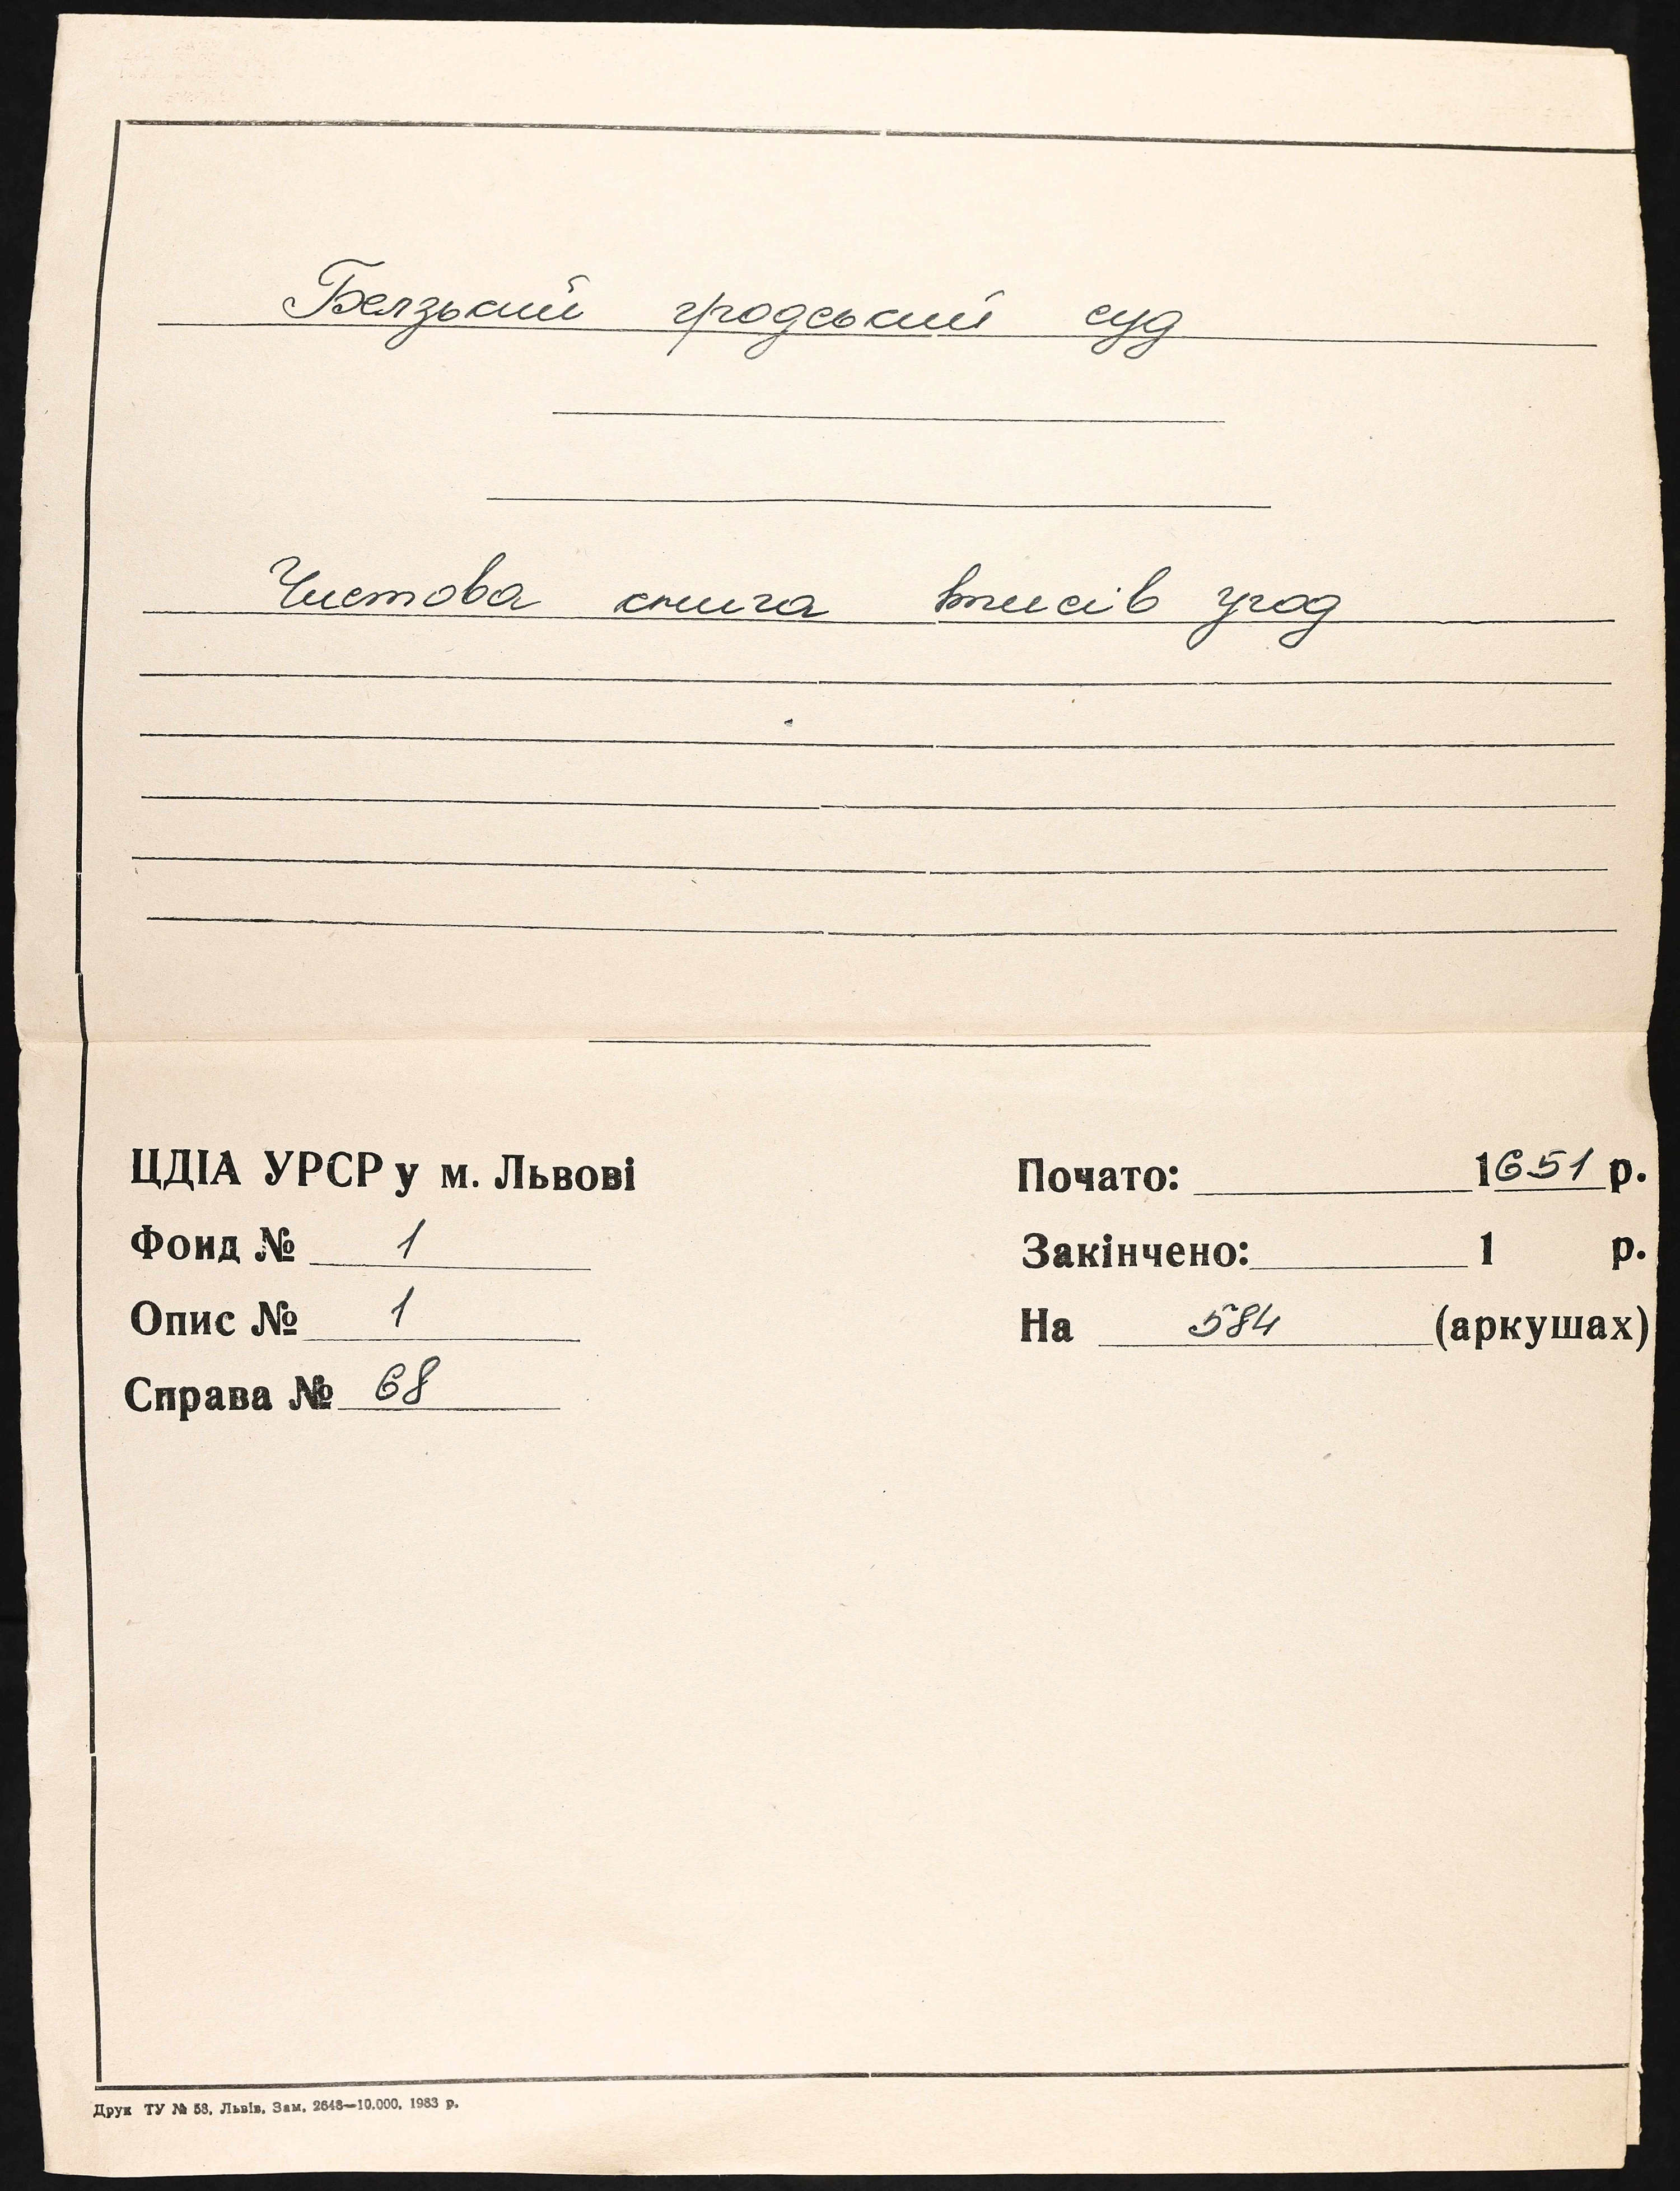 Белзький гродський суд
Чистова книга вписів угод
ЦДІА УРСР у м. Львові
Фонд № 1
Опис № 1
Справа № 68
Почато: 1651 р.
Закінчено: 1 р.
На 584 (аркушах)
Друк ТУ № 58, Львів, Зам. 2648—10.000, 1983 р.